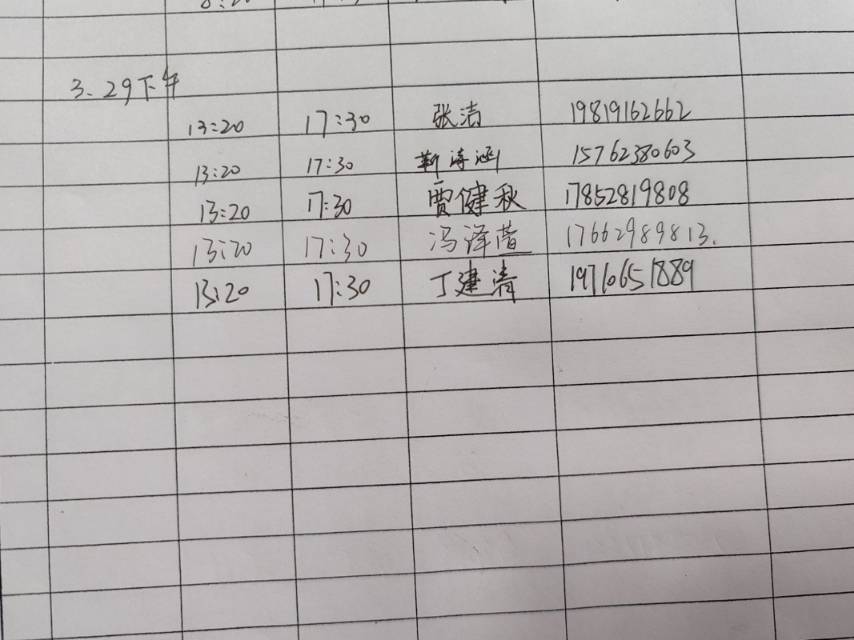 3.29下午
13:20 17:30 张洁 19819162662
13:20 17:30 靳诗涵 15762380603
13:20 17:30 贾健秋 17852819808
13:20 17:30 冯泽萱 17662989813.
13:20 17:30 丁建清 19710651889